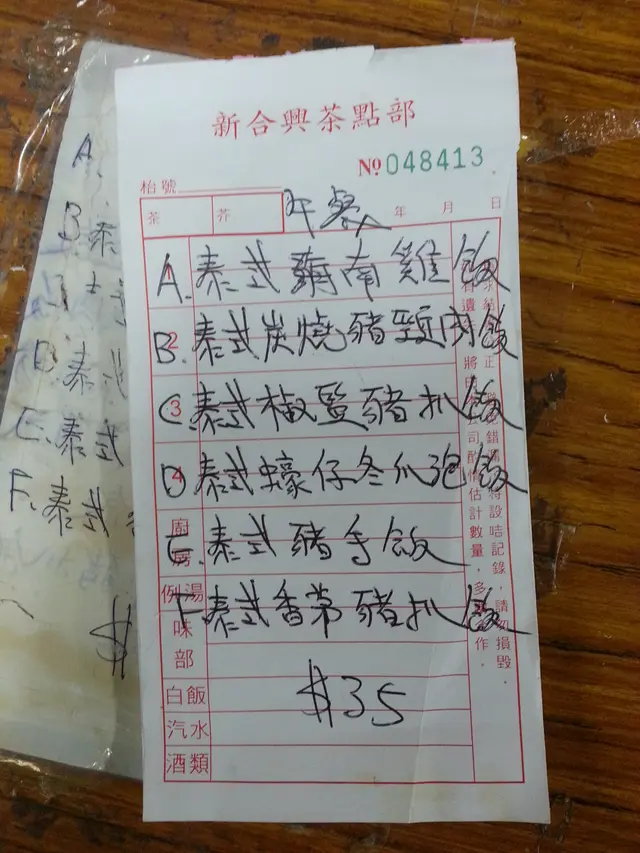 新合興茶點部
№ 048413
枱號
茶 芥 午餐 年 月 日
A. 泰式海南雞飯
B. 泰式炭燒豬頸肉飯
C. 泰式椒鹽豬扒飯
D. 泰式蠔仔冬瓜煲飯
E. 泰式豬手飯
F. 泰式香茅豬扒飯
$35
2
3
4
廚房
例湯
味部
白飯
汽水
酒類
A.
B. 泰
D. 泰式
E. 泰式
F. 泰式
$